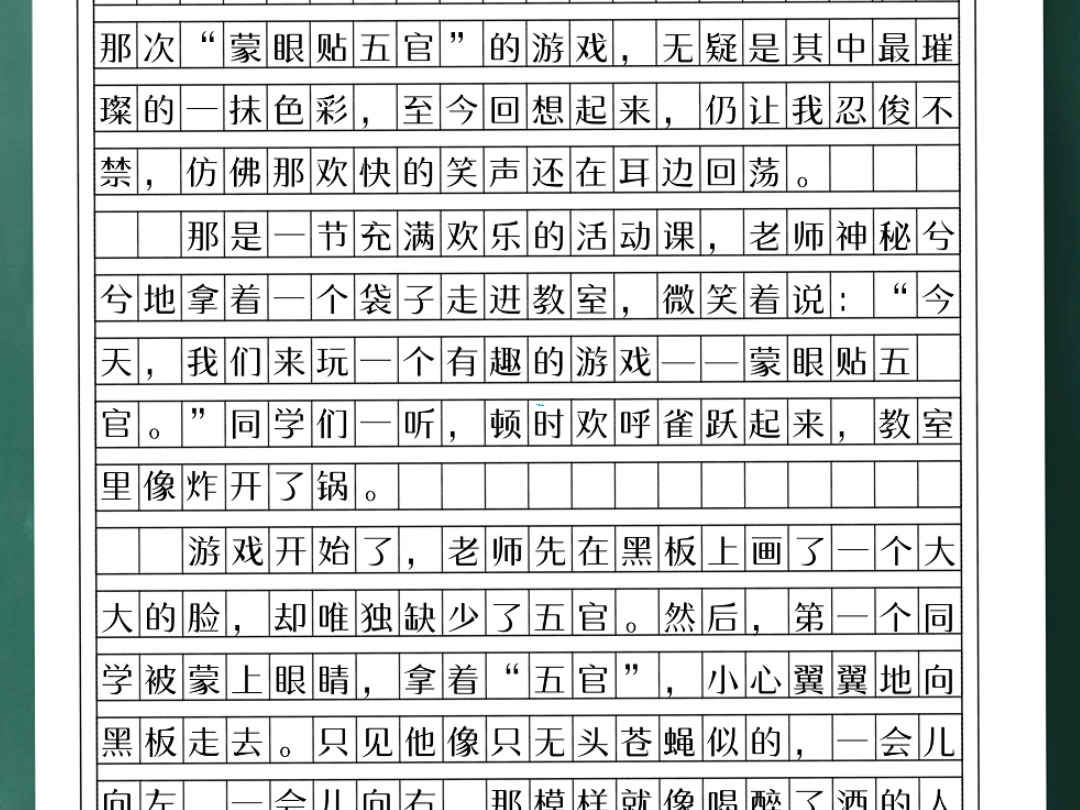 那次“蒙眼贴五官”的游戏，无疑是其中最璀
璨的一抹色彩，至今回想起来，仍让我忍俊不
禁，仿佛那欢快的笑声还在耳边回荡。
那是一节充满欢乐的活动课，老师神秘兮
兮地拿着一个袋子走进教室，微笑着说：“今
天，我们来玩一个有趣的游戏——蒙眼贴五
官。”同学们一听，顿时欢呼雀跃起来，教室
里像炸开了锅。
游戏开始了，老师先在黑板上画了一个大
大的脸，却唯独缺少了五官。然后，第一个同
学被蒙上眼睛，拿着“五官”，小心翼翼地向
黑板走去。只见他像只无头苍蝇似的，一会儿
向左 一会儿向右 那模样就像喝醉了酒的人